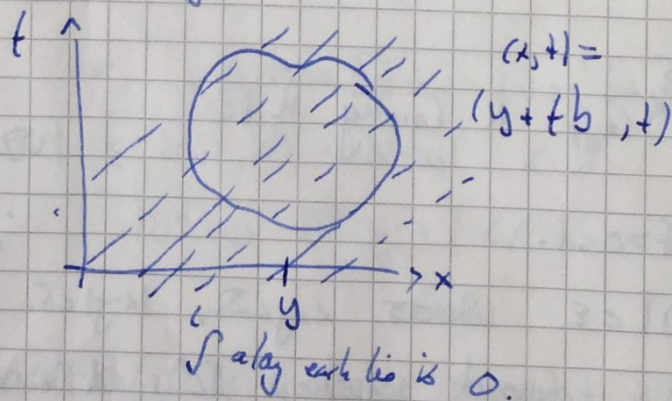 t
(x,t) =
(y + tb, t)
x
y
∫ along each line is 0.